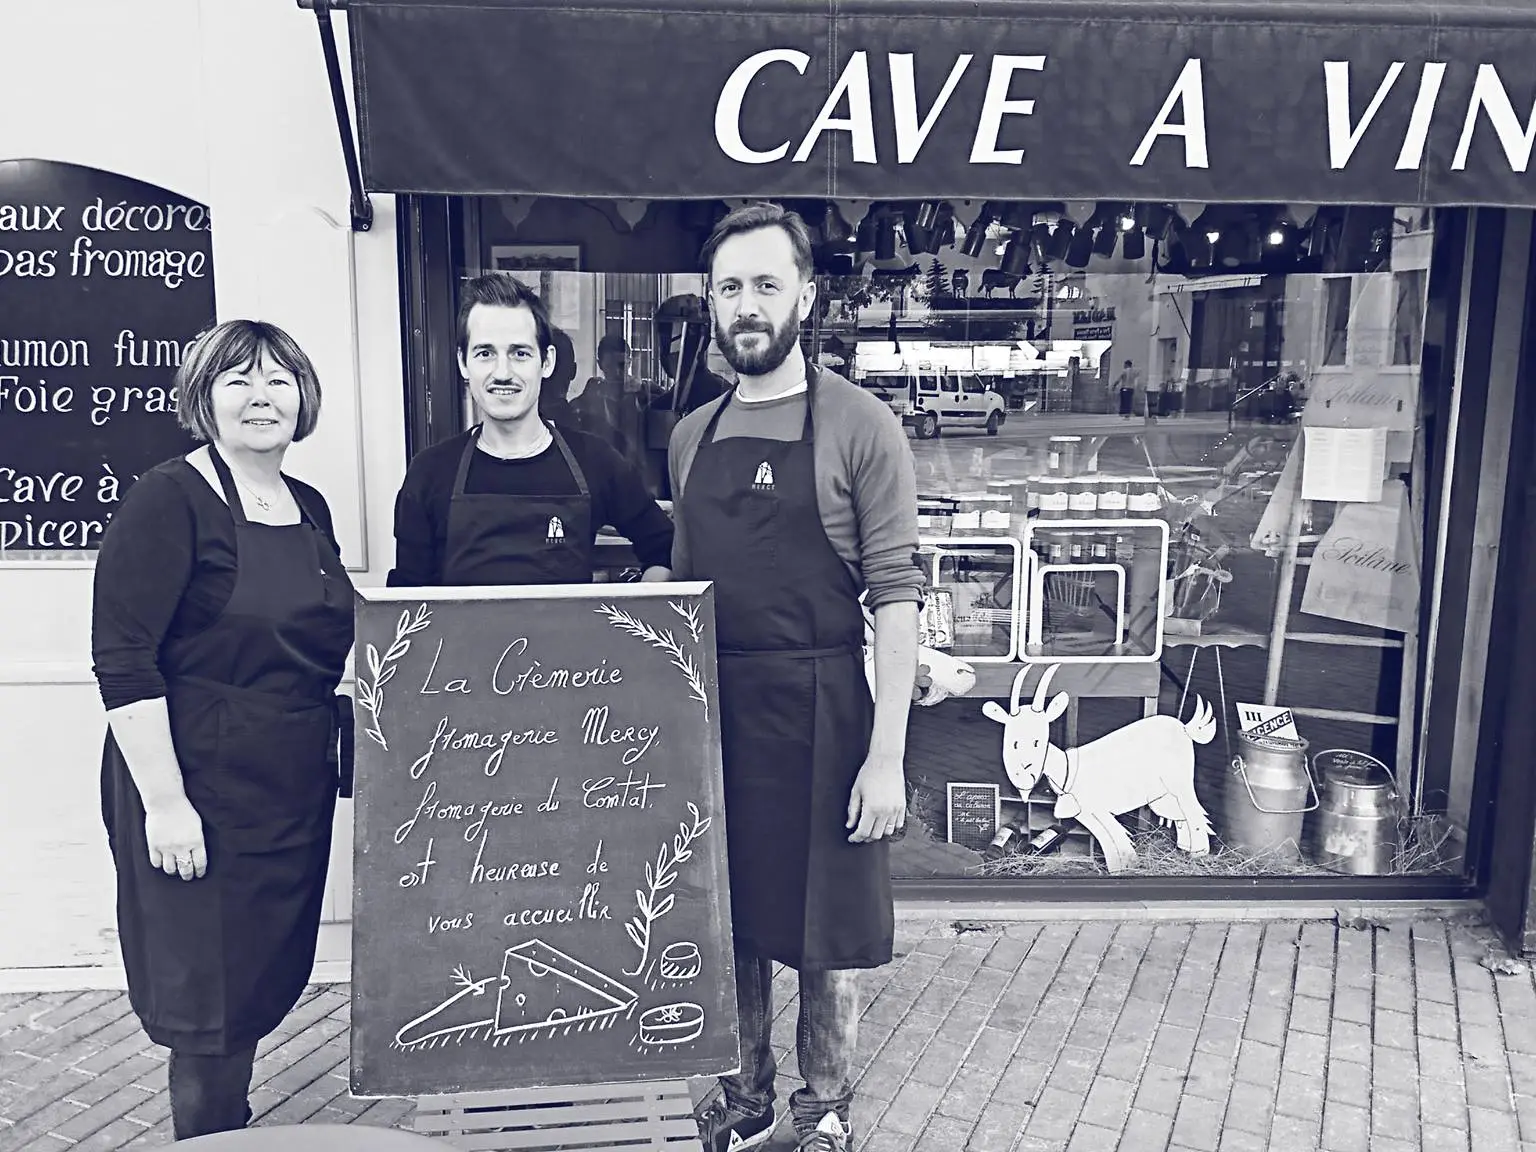 CAVE A VIN
aux décores
pas fromage
umon fumé
Foie gras
Cave à
picerie
MERCY
MERCY
La Crèmerie
fromagerie Mercy,
fromagerie du Comtat,
est heureuse de
vous accueillir
Poilâne
Poilâne
III